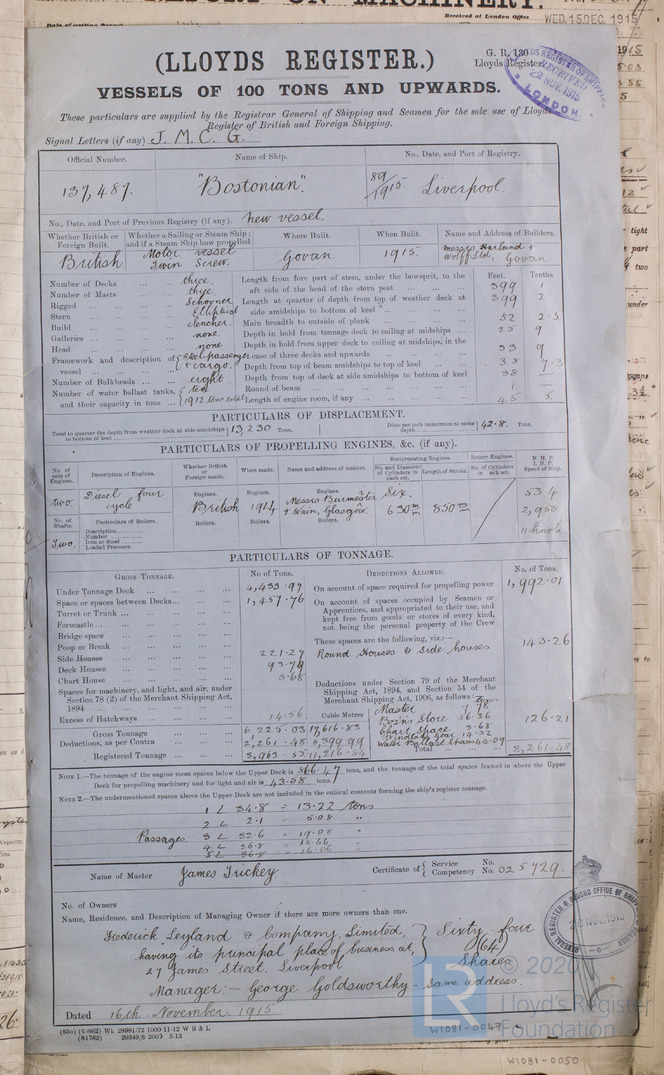 REPORT ON MACHINERY.
Received at London Office WED. 15 DEC. 1915
(LLOYDS REGISTER.)
G. R. 130
Lloyds Register
RECEIVED
22 NOV. 1915
LONDON
VESSELS OF 100 TONS AND UPWARDS.
These particulars are supplied by the Registrar General of Shipping and Seamen for the sole use of Lloyds
Register of British and Foreign Shipping.
Signal Letters (if any) J. M. C. G.
Official Number. Name of Ship. No., Date, and Port of Registry.
137,487. "Bostonian". 89/1915 Liverpool
No., Date, and Port of Previous Registry (if any). New vessel.
Whether British or Foreign Built. Whether a Sailing or Steam Ship; and if a Steam Ship how propelled. Where Built. When Built. Name and Address of Builders.
British Motor vessel Twin Screw. Govan 1915. Messrs Harland & Wolff Ltd, Govan
Feet. Tenths
Number of Decks three Length from fore part of stem, under the bowsprit, to the aft side of the head of the stern post 399 1
Number of Masts three
Rigged Schooner Length at quarter of depth from top of weather deck at side amidships to bottom of keel 399 2
Stern Elliptical
Build clencher. Main breadth to outside of plank 52 2.5
Galleries none. Depth in hold from tonnage deck to ceiling at midships 25 9
Head none Depth in hold from upper deck to ceiling at midships, in the case of three decks and upwards 33 9
Framework and description of vessel Steel passenger & cargo. Depth from top of beam amidships to top of keel 38 7.3
Number of Bulkheads eight Depth from top of deck at side amidships to bottom of keel 38
Number of water ballast tanks, and their capacity in tons 1912 tons total Round of beam 1
Length of engine room, if any 45 5
PARTICULARS OF DISPLACEMENT.
Total to quarter the depth from weather deck at side amidships to bottom of keel 13,230 Tons. Ditto per inch immersion at same depth 42.8 Tons.
PARTICULARS OF PROPELLING ENGINES, &c. (if any).
No. of sets of Engines. Description of Engines. Whether British or Foreign made. When made. Name and address of makers. Reciprocating Engines. No. and Diameter of Cylinders in each set. Length of Stroke. Rotary Engines. No. of Cylinders in each set. N. H. P. I. H. P. Speed of Ship.
Two. Diesel four cycle Engines. British Engines. 1914 Engines. Messrs Burmeister & Wain, Glasgow. Six. 630 mm 850 mm 534
2,950
11 knots
No. of Shafts. Particulars of Boilers. Boilers. Boilers. Boilers.
Two. Description
Number
Iron or Steel
Loaded Pressure
PARTICULARS OF TONNAGE.
GROSS TONNAGE. No of Tons. DEDUCTIONS ALLOWED. No. of Tons.
Under Tonnage Deck 4,433.97 On account of space required for propelling power 1,992.01
Space or spaces between Decks 1,457.76 On account of spaces occupied by Seamen or Apprentices, and appropriated to their use, and kept free from goods or stores of every kind, not being the personal property of the Crew 143.26
Turret or Trunk
Forecastle
Bridge space
Poop or Break These spaces are the following, viz.:—
Side Houses 221.27 Round Houses & side houses
Deck Houses 93.79
Chart House 3.68 Deductions under Section 79 of the Merchant Shipping Act, 1894, and Section 54 of the Merchant Shipping Act, 1906, as follows:
Spaces for machinery, and light, and air, under Section 78 (2) of the Merchant Shipping Act, 1894
Excess of Hatchways 14.56 Cubic Metres
Master 7.75
Bos'ns Store 56.36 126.21
Gross Tonnage 6,225.03 17,616.83 Chart Space 3.68
Deductions, as per Contra 2,261.48 6,399.99 Windlass gear 14.32
Water Ballast space 44.09
Registered Tonnage 3,963.55 11,216.84 Total 2,261.48
NOTE 1.—The tonnage of the engine room spaces below the Upper Deck is 566.47 tons, and the tonnage of the total spaces framed in above the Upper Deck for propelling machinery and for light and air is 43.58 tons.
NOTE 2.—The undermentioned spaces above the Upper Deck are not included in the cubical contents forming the ship's register tonnage.
1 L 34.8 = 13.22 tons
2 L 2.1 = 5.08 "
Passages 3 L 32.6 = 19.08 "
4 L 36.8 = 18.66 "
5 L 36.8 = 16.06 "
Name of Master James Trickey. Certificate of Service No.
Competency No. 025429.
No. of Owners
Name, Residence, and Description of Managing Owner if there are more owners than one.
Frederick Leyland & Company, Limited, Sixty four
having its principal place of business at, (64)
27 James Street, Liverpool Shares
Manager:— George Goldsworthy — Same address.
Dated 16th November 1915.
(83o) (6.862) Wt. 28981/72 1000 11-12 W B & L
(81762) 20349/8 2000 3-13
© 2020
Lloyd's Register
Foundation
LR
W1081-0047
W1081-0050